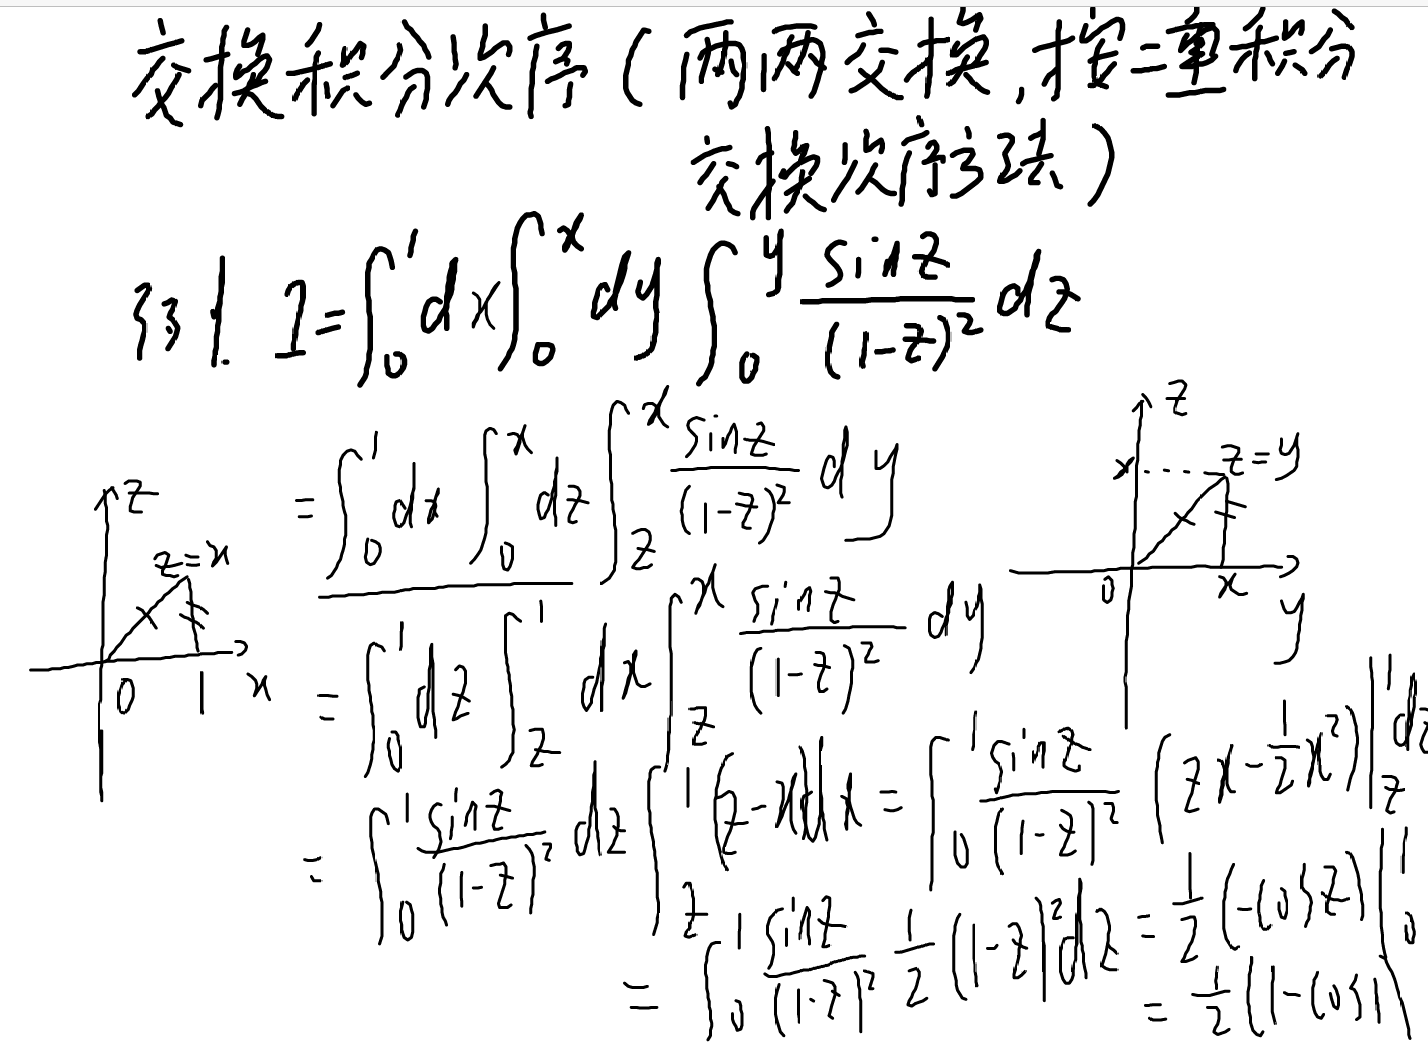 交换积分次序(两两交换,按二重积分
交换次序方法)
例1. I=∫₀¹dx∫₀ˣdy∫₀ʸ sinz/(1-z)² dz
=∫₀¹dx∫₀ˣdz∫_z^x sinz/(1-z)² dy
=∫₀¹dz∫_z^1 dx∫_z^x sinz/(1-z)² dy
=∫₀¹ sinz/(1-z)² dz∫_z^1 (z-x)dx=∫₀¹ sinz/(1-z)² (zx-½x²)|_z^1 dz
=∫₀¹ sinz/(1-z)² ½(1-z)²dz=½(-cosz)|₀¹
=½(1-cos1)
z
z=x
0 1 x
z
x z=y
0 x
y